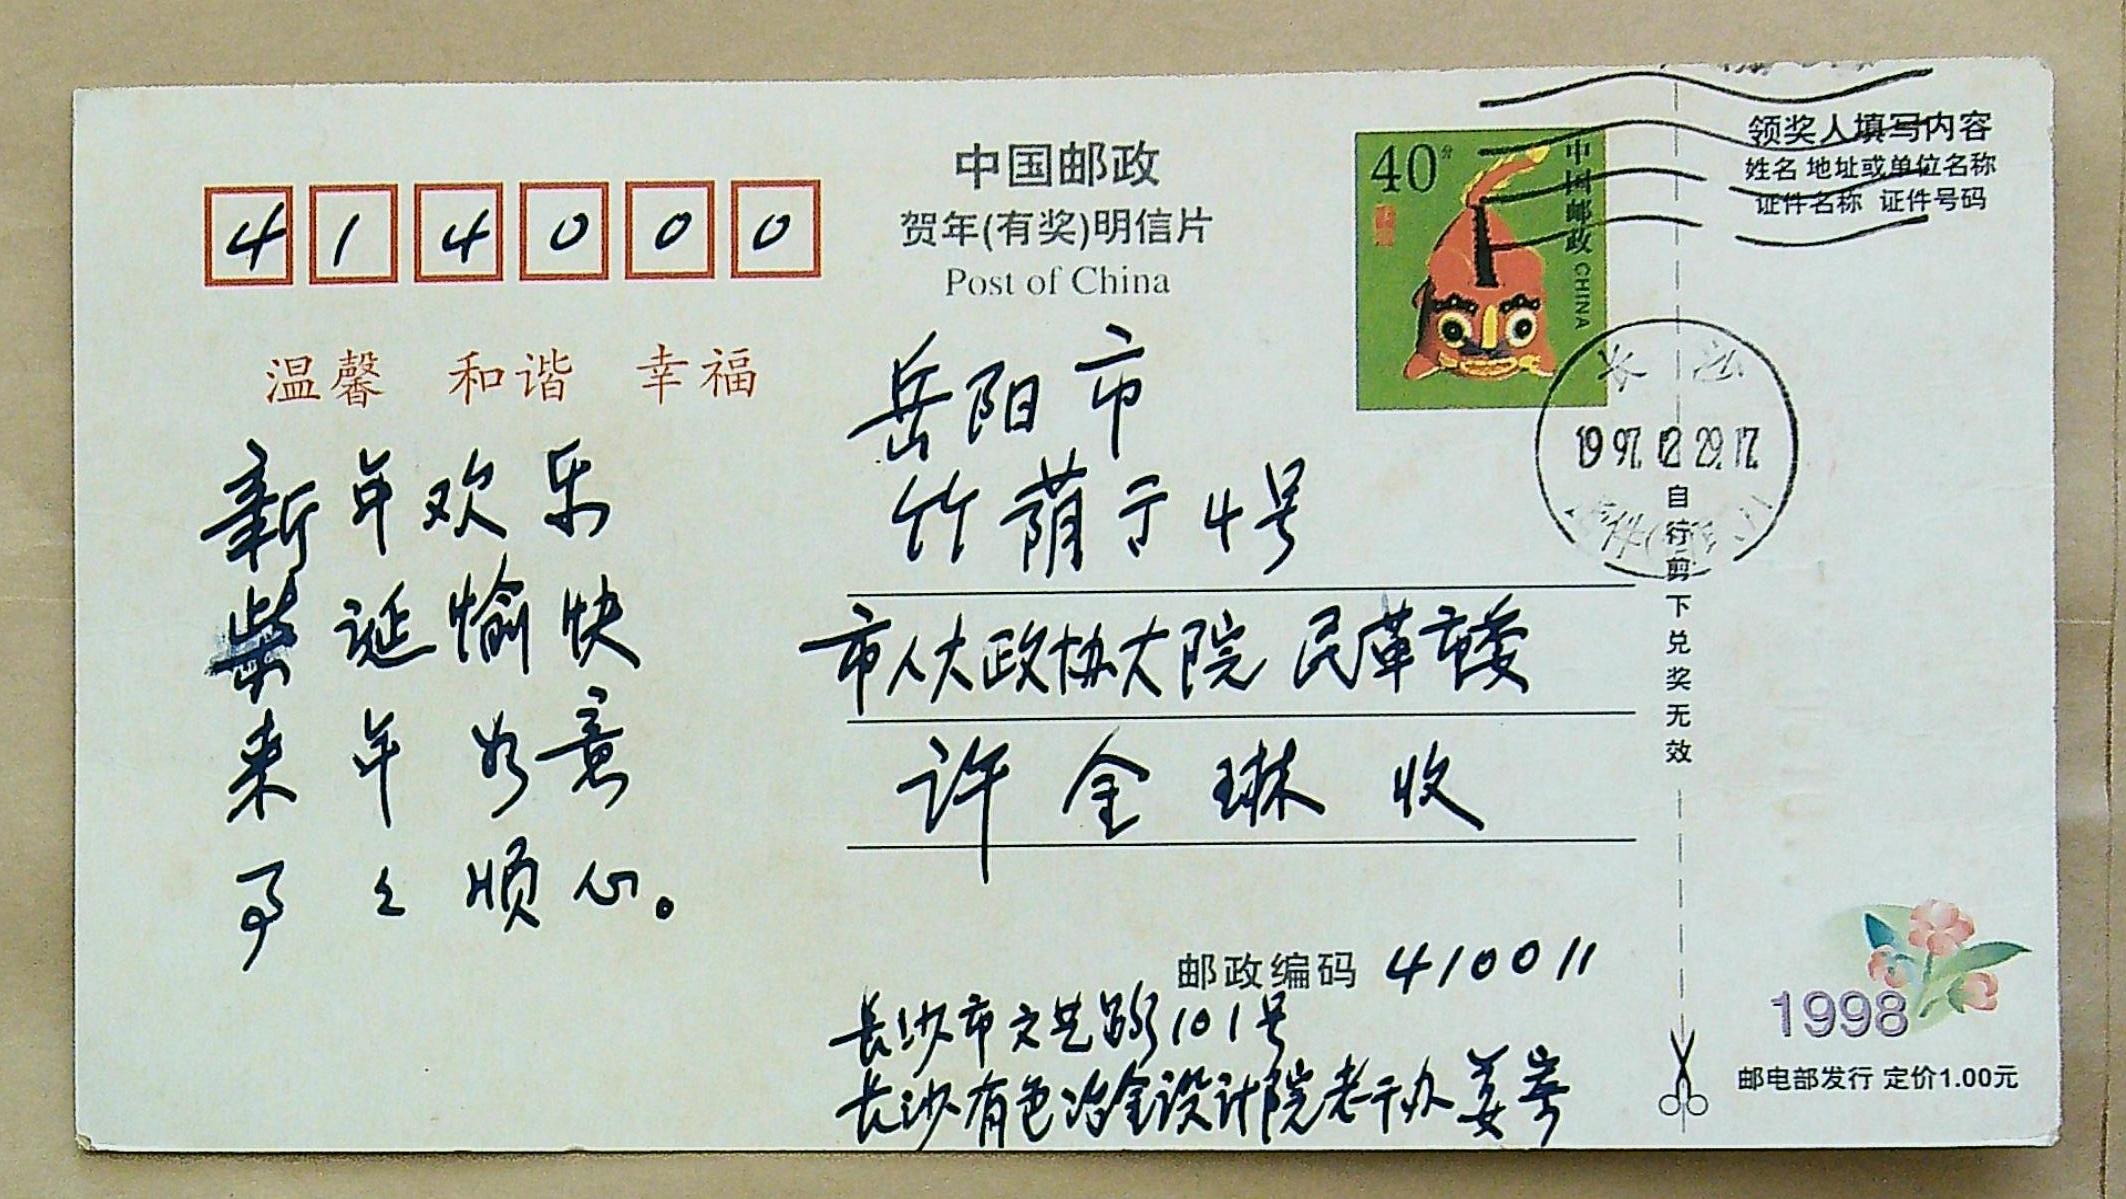 414000
中国邮政
贺年(有奖)明信片
Post of China
40分
中国邮政 CHINA
领奖人填写内容
姓名 地址或单位名称
证件名称 证件号码
温馨 和谐 幸福
新年欢乐
诞愉快
来年如意
事々顺心。
岳阳市
竹荫于4号
市人大政协大院民革市委
许金琳 收
长沙
1997.12.29.17.
自行剪下兑奖无效
邮政编码 410011
长沙市文艺路101号
长沙有色冶金设计院老干办姜
1998
邮电部发行 定价1.00元